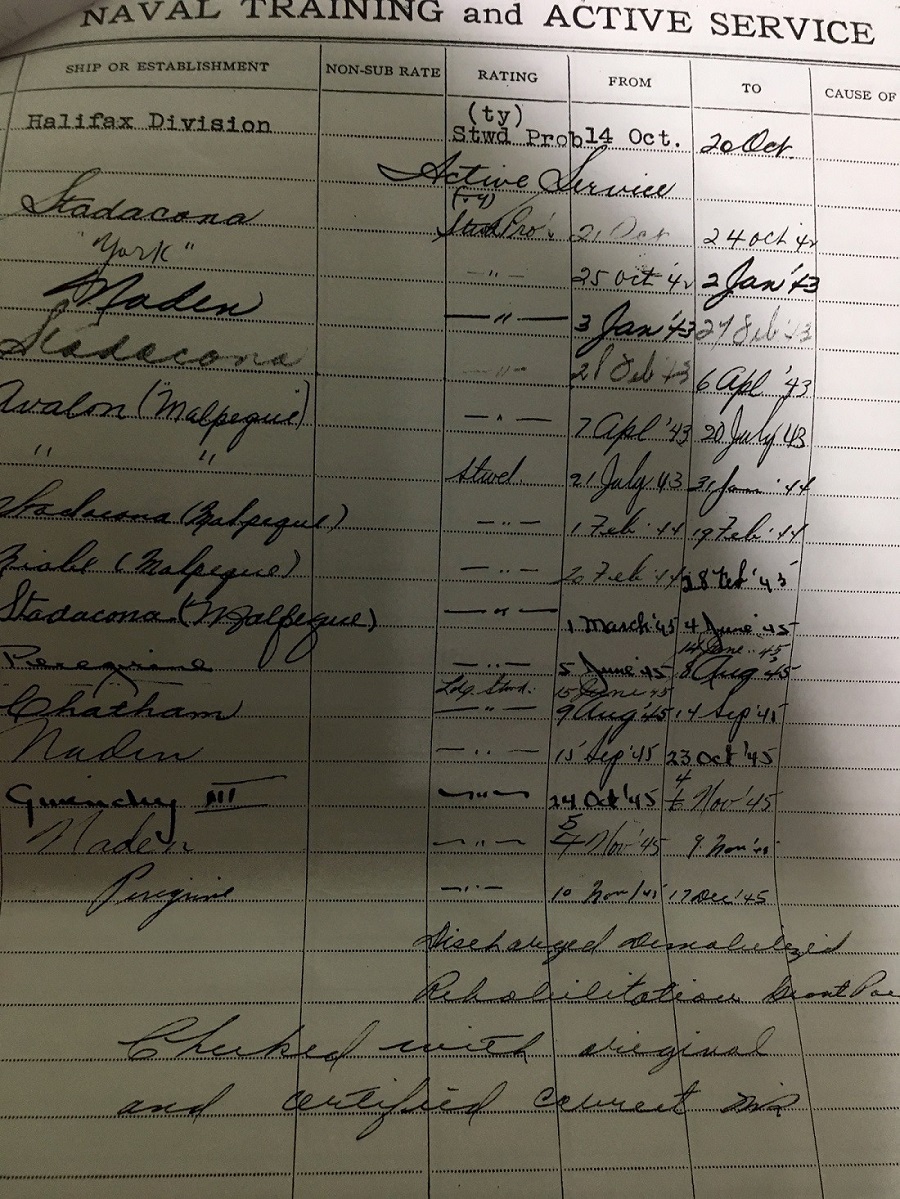 NAVAL TRAINING and ACTIVE SERVICE
SHIP OR ESTABLISHMENT NON-SUB RATE RATING FROM TO CAUSE OF
(ty)
Halifax Division Stwd Prob 14 Oct. 20 Oct.
Active Service
(ty)
Stadacona Stwd Pro' 21 24 Oct 42
"York" —"— 25 Oct '42 2 Jan '43
Naden —"— 3 Jan '43 27 Feb '43
Stadacona —"— 28 Feb '43 6 Apl '43
Avalon (Malpeque) —"— 7 Apl '43 20 July 43
" " Stwd. 21 July 43 31 Jan '44
Stadacona (Malpeque) —"— 1 Feb '44 19 Feb '44
Niobe (Malpeque) —"— 20 Feb '44 28 Feb '45
Stadacona (Malpeque) —"— 1 March '45 4 June '45
14 June '45
Peregrine —"— 5 June '45 8 Aug '45
Ldg. Stwd. 15 June '45
Chatham —"— 9 Aug '45 14 Sep '45
Naden —"— 15 Sep '45 23 Oct '45
4
Givenchy III —"— 24 Oct '45 Nov '45
5
Naden —"— Nov '45 9 Nov '45
Peregrine —"— 10 Nov '45 17 Dec '45
Discharged Demobilized
Rehabilitation Grant
Checked with original
and certified correct